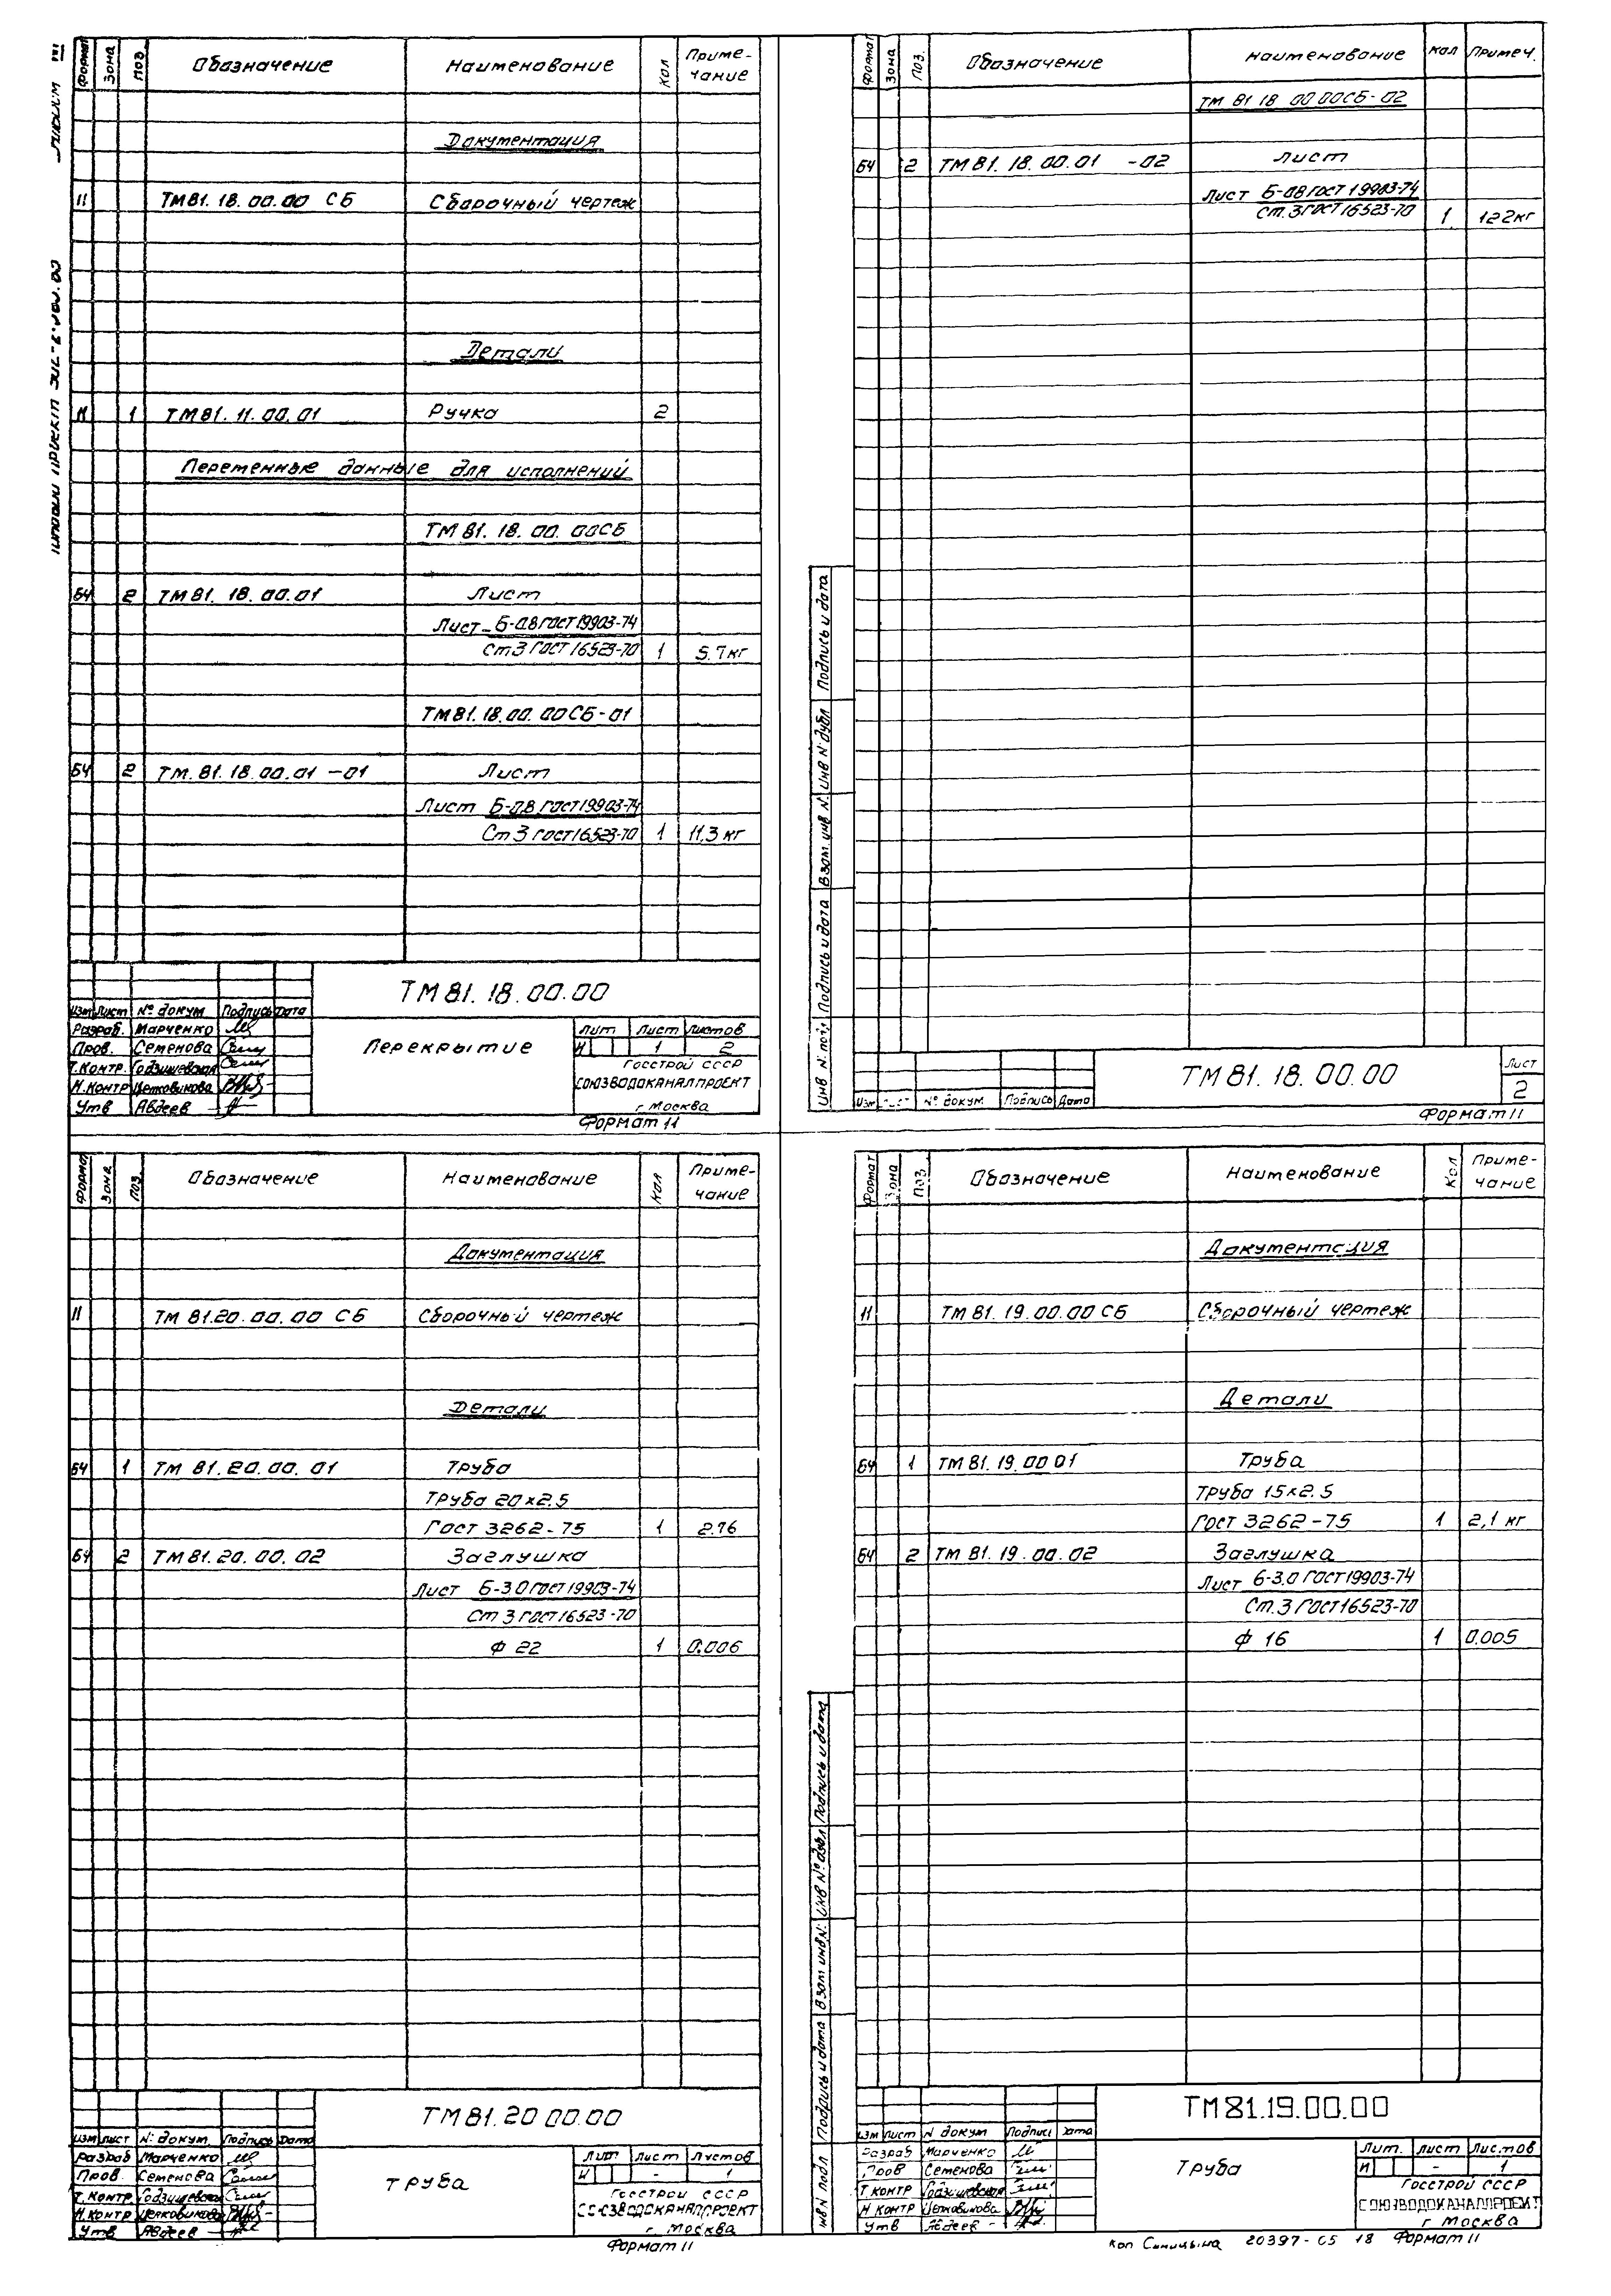 Альбом III
Типовой проект
Формат Зона Поз. Обозначение Наименование Кол Приме-
чание
Документация
11 ТМ81.18.00.00 СБ Сборочный чертеж
Детали
11 1 ТМ81.11.00.01 Ручка 2
Переменные данные для исполнений
ТМ81.18.00.00СБ
БЧ 2 ТМ81.18.00.01 Лист
Лист Б-0.8 ГОСТ 19903-74
Ст 3 ГОСТ 16523-70 1 5.7кг
ТМ81.18.00.00СБ-01
БЧ 2 ТМ.81.18.00.01 -01 Лист
Лист Б-0,8 ГОСТ 19903-74
Ст 3 ГОСТ 16523-70 1 11,3 кг
ТМ81.18.00.00
Изм Лист № докум Подпись Дата
Разраб. Марченко
Пров. Семенова
Т.контр.
Н.контр
Утв Авдеев
Перекрытие
Лит Лист Листов
И 1 2
Госстрой СССР
СОЮЗВОДОКАНАЛПРОЕКТ
г. Москва
Формат 11
Формат Зона Поз. Обозначение Наименование Кол Примеч.
ТМ 81 18 00 00СБ-02
БЧ 2 ТМ81.18.00.01 -02 Лист
Лист Б-08 ГОСТ 19903-74
Ст. 3 ГОСТ 16523-70 1 12.2кг
Инв N. подл Подпись и дата Взам. инв N. Инв N дубл Подпись и дата
ТМ81.18.00.00
Лист
2
Изм Лист № докум Подпись Дата
Формат 11
Формат Зона Поз. Обозначение Наименование Кол Приме-
чание
Документация
11 ТМ 81.20.00.00 СБ Сборочный чертеж
Детали
БЧ 1 ТМ 81.20.00.01 Труба
Труба 20×2.5
ГОСТ 3262-75 1 2.76
БЧ 2 ТМ81.20.00.02 Заглушка
Лист Б-3.0 ГОСТ 19903-74
Ст 3 ГОСТ 16523-70
Ф 22 1 0.006
ТМ81.20 00.00
Изм Лист № докум. Подпись Дата
Разраб Марченко
Пров. Семенова
Т.контр
Н.контр
Утв Авдеев
Труба
Лит Лист Листов
И - 1
Госстрой СССР
СОЮЗВОДОКАНАЛПРОЕКТ
г. Москва
Формат 11
Формат Зона Поз Обозначение Наименование Кол Приме-
чание
Документация
11 ТМ 81.19.00.00 СБ Сборочный чертеж
Детали
БЧ 1 ТМ81.19.00 01 Труба
Труба 15×2.5
ГОСТ 3262-75 1 2,1 кг
БЧ 2 ТМ 81.19.00.02 Заглушка
Лист Б-3.0 ГОСТ 19903-74
Ст. 3 ГОСТ 16523-70
Ф 16 1 0.005
Инв N подл Подпись и дата Взам инв N. Инв № дубл Подпись и дата
ТМ81.19.00.00
Изм Лист N докум Подпись Дата
Разраб Марченко
Пров Семенова
Т.контр
Н контр
Утв Авдеев
Труба
Лит. Лист Листов
И - 1
Госстрой СССР
СОЮЗВОДОКАНАЛПРОЕКТ
г Москва
Коп Синицына 20397-05 18 Формат 11